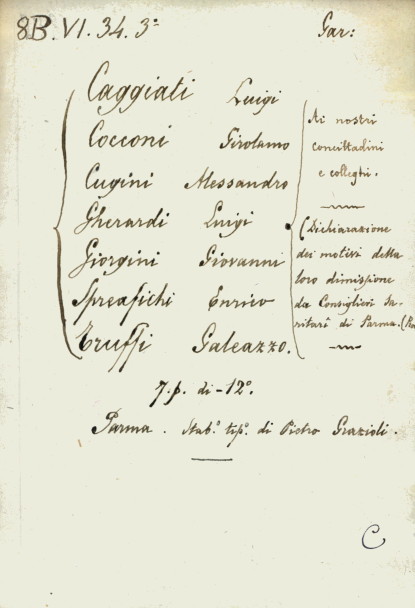 8B.VI.34.3° Gar:
Caggiati Luigi
Cocconi Girolamo
Cugini Alessandro
Gherardi Luigi
Giorgini Giovanni
Spreafichi Enrico
Truffi Galeazzo.
Ai nostri
concittadini
e colleghi.
(Dichiarazione
dei motivi della
loro dimissione
da Consiglieri Sa-
nitarî di Parma.
7.p. di -12°.
Parma. Stab.° tip.° di Pietro Grazioli.
C